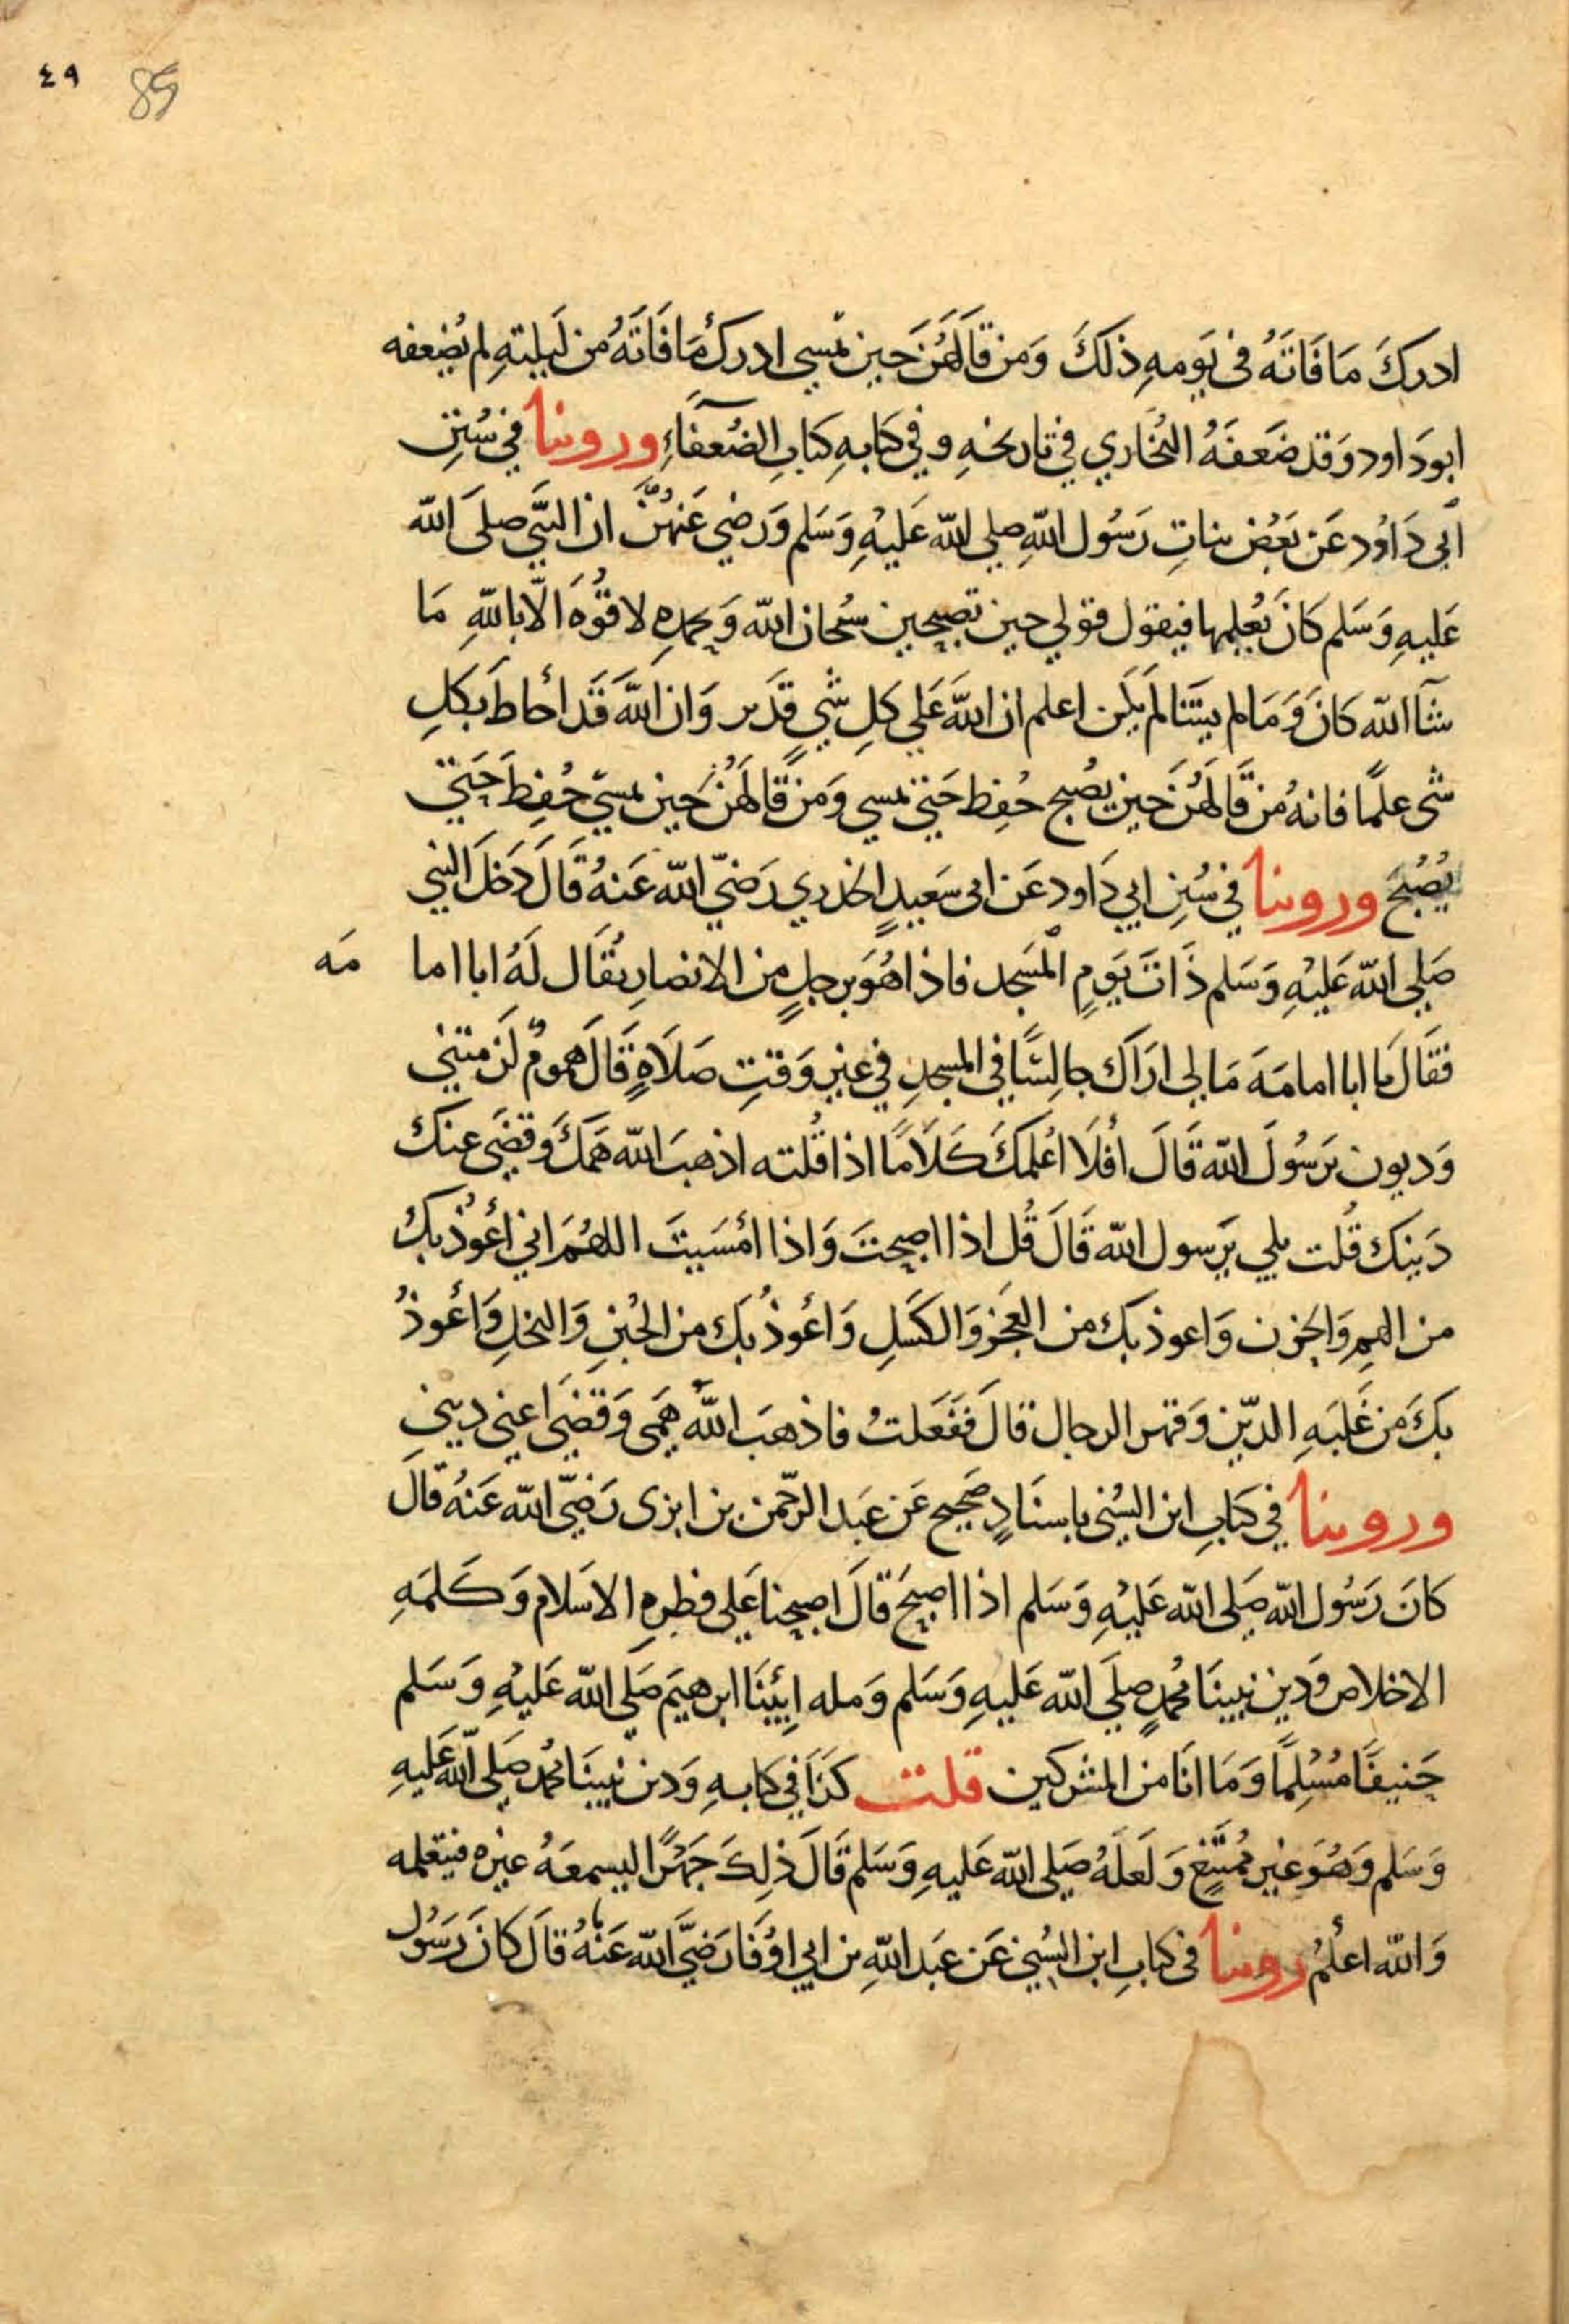 ٤٩ 85
ادركَ مَا فَاتَهُ فى يَومهِ ذلكَ وَمن قالَهُنَّ حين تمسى ادركَ مَا فَاتَهُ من لَيلتهِ لم يُضعفه
ابو دَاود وَقد ضَعفَهُ البُخَاري في تاريخهِ وفي كتَابهِ كتابِ الضُعفَآءِ وروينا في سُننِ
ابي دَاوُد عَن بَعْض بناتِ رَسُول اللّهِ صلي اللّه عَليْهِ وَسَلم وَرضي عَنهُنَّ ان النبَّي صلىَ اللّه
عَليهِ وَسَلم كانَ يُعلمها فيقول قولي حين تصبحين سُبحان اللّه وَبحمدهِ لا قُوَّه الّا باللّهِ مَا
شآ اللّه كانَ وَمَا لم يشَا لَم يكَن اعلم ان اللّهَ عَلي كلِ شيٍ قَدير وَان اللّهَ قَد أحاطَ بكلِ
شى علمًا فانهُ من قَالَهُنَ حين يُصبح حُفِظ حَتي تمسي وَمن قالَهُنَ حين تمسيّ حُفِظَ حَتي
يُصْبحَ وروينا في سُننِ ابي دَاود عَن ابى سَعيدٍ الخدري رَضيّ اللّه عَنهُ قَالَ دَخلَ النبي
صَلي اللّه عَليْهِ وَسَلم ذَاتَ يَومٍ المَسَجد فاذا هُوَ برجلٍ من الانصارِ يُقَال لَهُ ابا اما مَه
فَقَالَ يا ابا امامَهَ مَا لى ارَاَك جالسًا في المسجدِ في غير وَقتِ صَلاَةٍ قَالَ همومٌ لَزمتني
وَديون يرَسُولَ اللّه قَالَ أفَلاَ اعُلمكَ كَلاَمًا اذا قُلته اذهبَ اللّه هَمكَ وَقضَى عنك
دَينك قُلت بلي يرَسول اللّه قَالَ قُل اذا اصبحتَ وَاذا امُسَيتَ اللهُمَ اني أعُوذُ بكُ
من الهمِ وَالحزن وَاعوذ بك من العَجزِ وَالكَسَلِ وَاعُوذُ بكَ من الجُبنِ وَالبخلِ وَاعُوذُ
بكَ من غَلبَهِ الدّين وَقهر الرجال قالَ فَفَعلتُ فاذهبَ اللّهُ هَمي وَقضَى اعني ديني
وروينا في كتَابِ ابن السُنى باسنَادٍ صَحيح عَن عَبَد الرحّمن بن ابزى رَضيّ اللّه عَنهُ قالَ
كانَ رَسُول اللّه صَلى اللّه عَليْهِ وَسَلم اذا اصبَحَ قالَ اصبحنا عَلي فطرهِ الاسَلام وَكَلمَهِ
الاخلاص وَدين نبينَا مُحمدٍ صلَي اللّه عَليهِ وَسَلم وَمله ابينَا ابرهيَم صَلَي اللّه عَليْهِ وَسَلم
حَنيفَا مُسْلِمًا وَمَا انَا من المشركين قلت كذَا فى كتابهِ وَدين نبينَا محُمد صَلى اللّه عَليهِ
وَسَلم وَهُوَ غير مُمتَنِع وَلعَلهُ صَلى اللّه عَليهِ وَسَلم قَالَ ذلكَ جَهرًا ليسمعَهُ غيره فيتعلمه
وَاللّه اعلمُ روينا فى كتابِ ابن السُنيّ عَن عَبَد اللّهِ بن ابي اوفَا رَضيَّ اللّه عَنهُ قالَ كانَ رَسُول